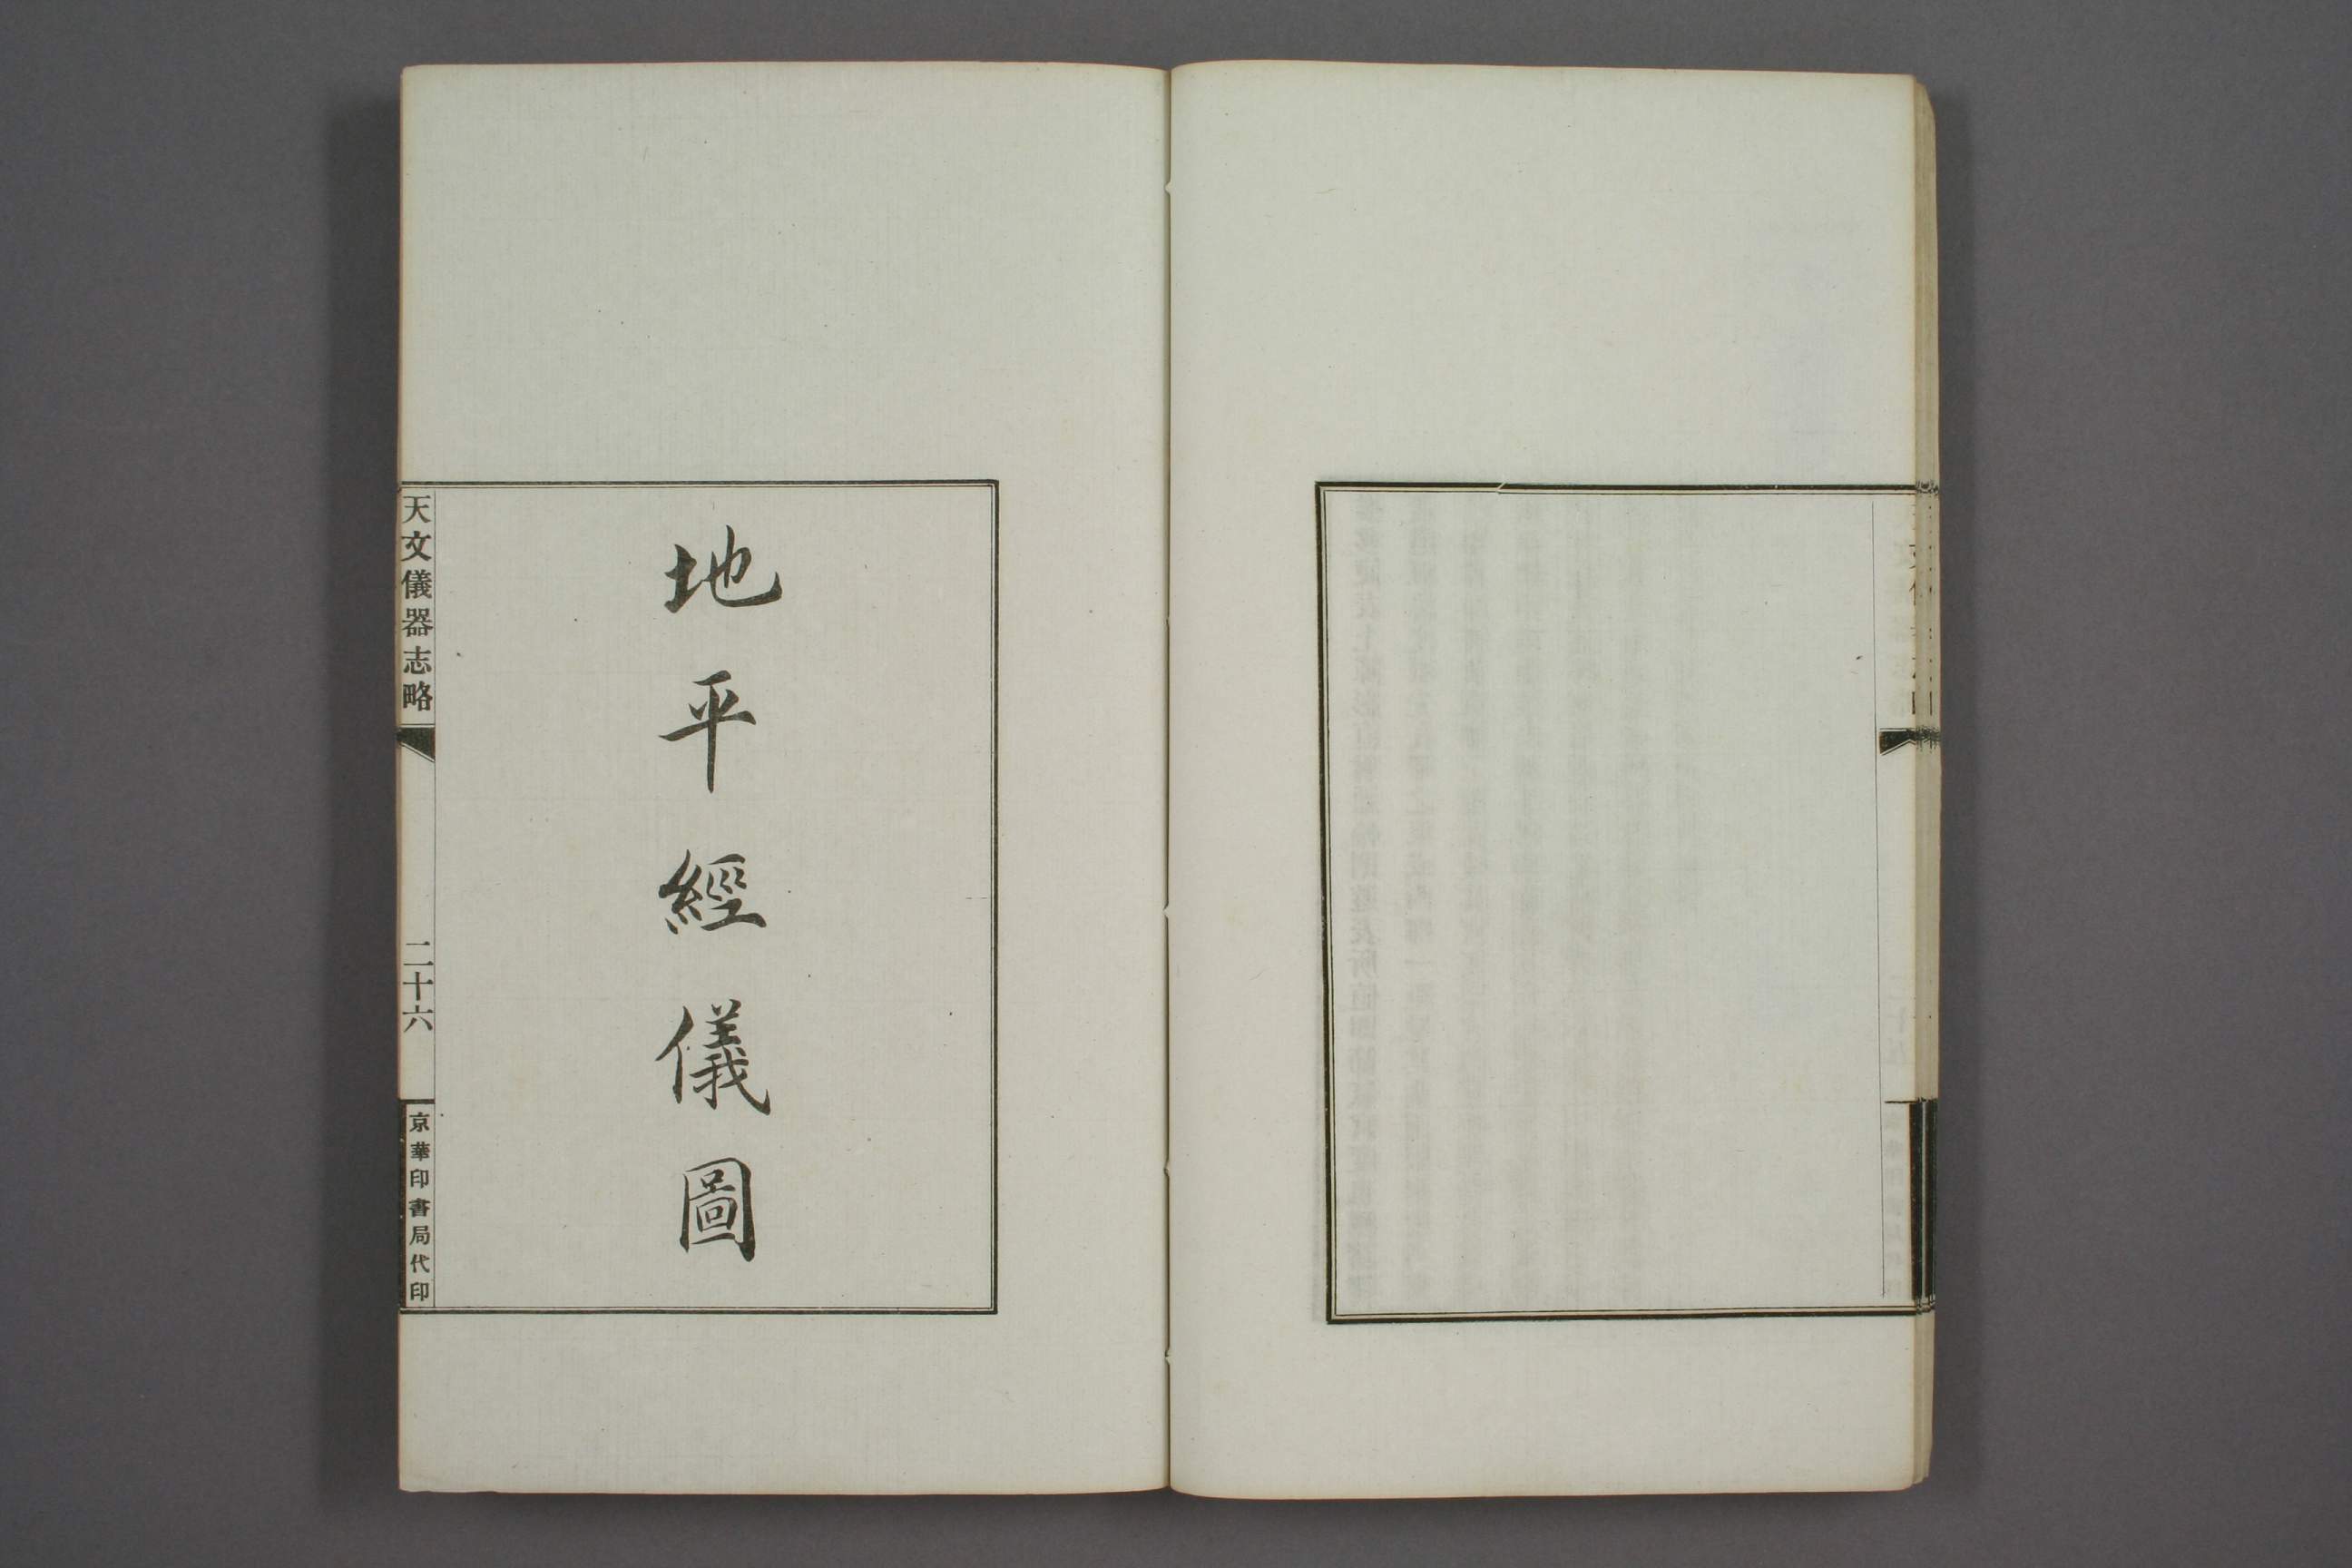 地平經儀圖
天文儀器志略
二十六
京華印書局代印